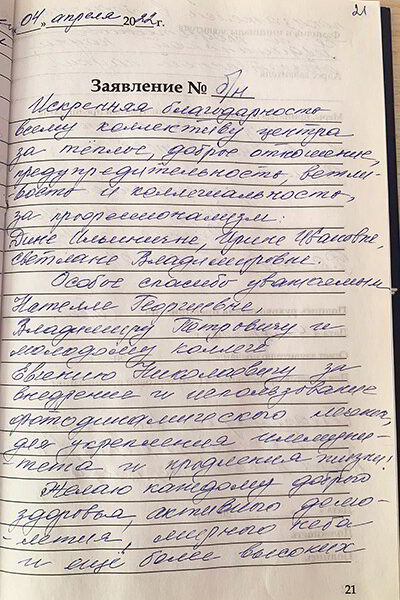 21
«04» апреля 2022 г.
Заявление № б/н
Искренняя благодарность
всему коллективу центра
за тёплое, доброе отношение,
предупредительность, вежли-
вость и коллегиальность,
за профессионализм:
Дине Ильиничне, Ирине Ивановне,
Светлане Владимировне.
Особое спасибо уважаемым
Нателле Георгиевне,
Владимиру Петровичу и
молодому коллеге
Евгению Николаевичу за
внедрение и использование
фотодинамического
для укрепления иммуни-
-тета и продления жизни!
Желаю каждому доброго
здоровья, активного долго-
-летия, мирного неба
и ещё более высоких
21